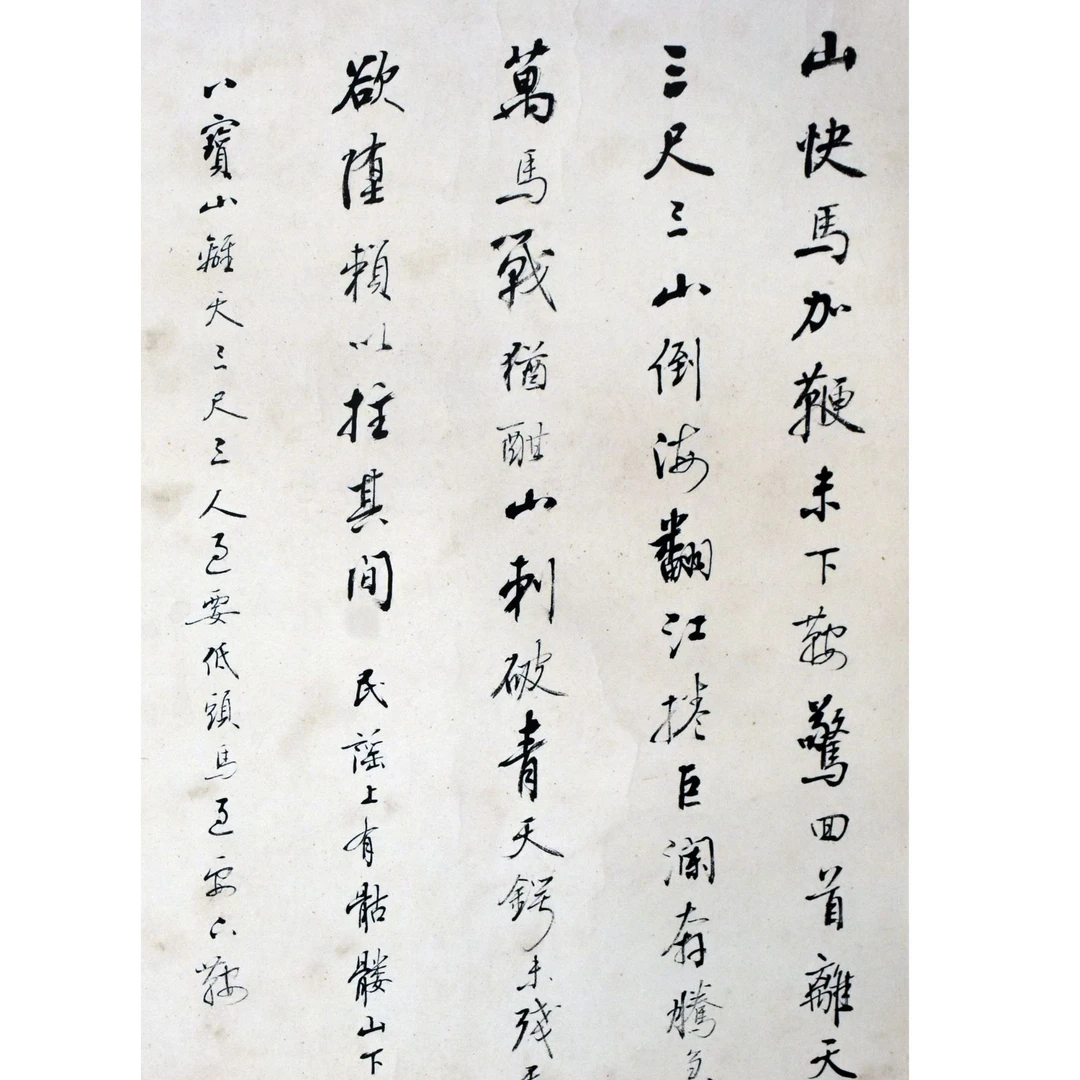 山快馬加鞭未下鞍驚回首離天
三尺三山倒海翻江捲巨瀾奔騰急
萬馬戰猶酣山刺破青天鍔未殘天
欲墮賴以拄其間 民謡上有骷髏山下
八寶山離天三尺三人過要低頭馬過要下鞍